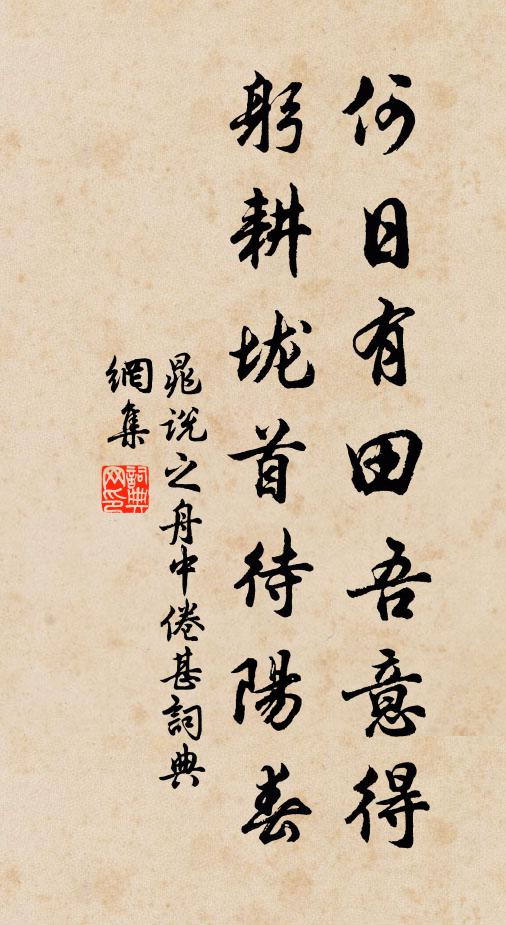 何日有田吾意得
躬耕垅首待陽春
晁说之舟中倦甚詞典
網集
詞典
网印